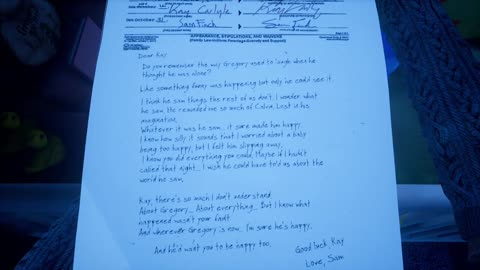 Kay Carlyle
Sam Finch
Sam Finch
APPEARANCE, STIPULATIONS, AND WAIVERS
(Family Law—Uniform Parentage—Custody and Support)
Dear Kay
Do you remember the way Gregory used to laugh when he
thought he was alone?
Like something funny was happening but only he could see it.
I think he saw things the rest of us don't. I wonder what
he saw. He reminded me so much of Calvin. Lost in his
imagination.
Whatever it was he saw... it sure made him happy.
I know how silly it sounds that I worried about a baby
being too happy, but I felt him slipping away.
I know you did everything you could. Maybe if I hadn't
called that night... I wish he could have told us about the
world he saw.
Kay, there's so much I don't understand.
About Gregory... About everything... But I know what
happened wasn't your fault
And wherever Gregory is now, I'm sure he's happy.
And he'd want you to be happy too.
Good luck Kay
Love, Sam